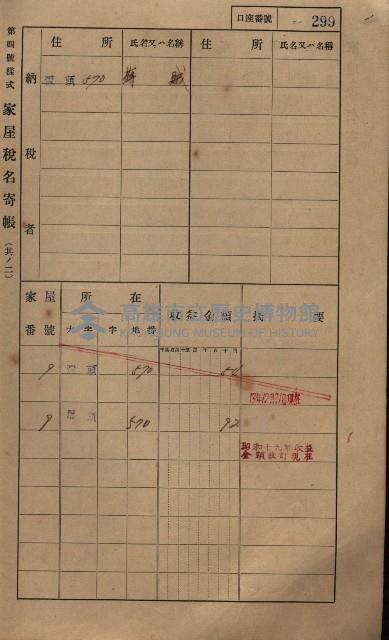 口座番號 299
第四號樣式 家屋稅名寄帳（其ノ二）
納稅者
住所 氏名又ハ名稱 住所 氏名又ハ名稱
頭 570
家屋番號 所在 收益金額 摘要
大字 字 地番
高雄市立歷史博物館
KAOHSIUNG MUSEUM OF HISTORY
9 頭 570
9 頭 570 92
昭和十九年收益
金額改訂現在